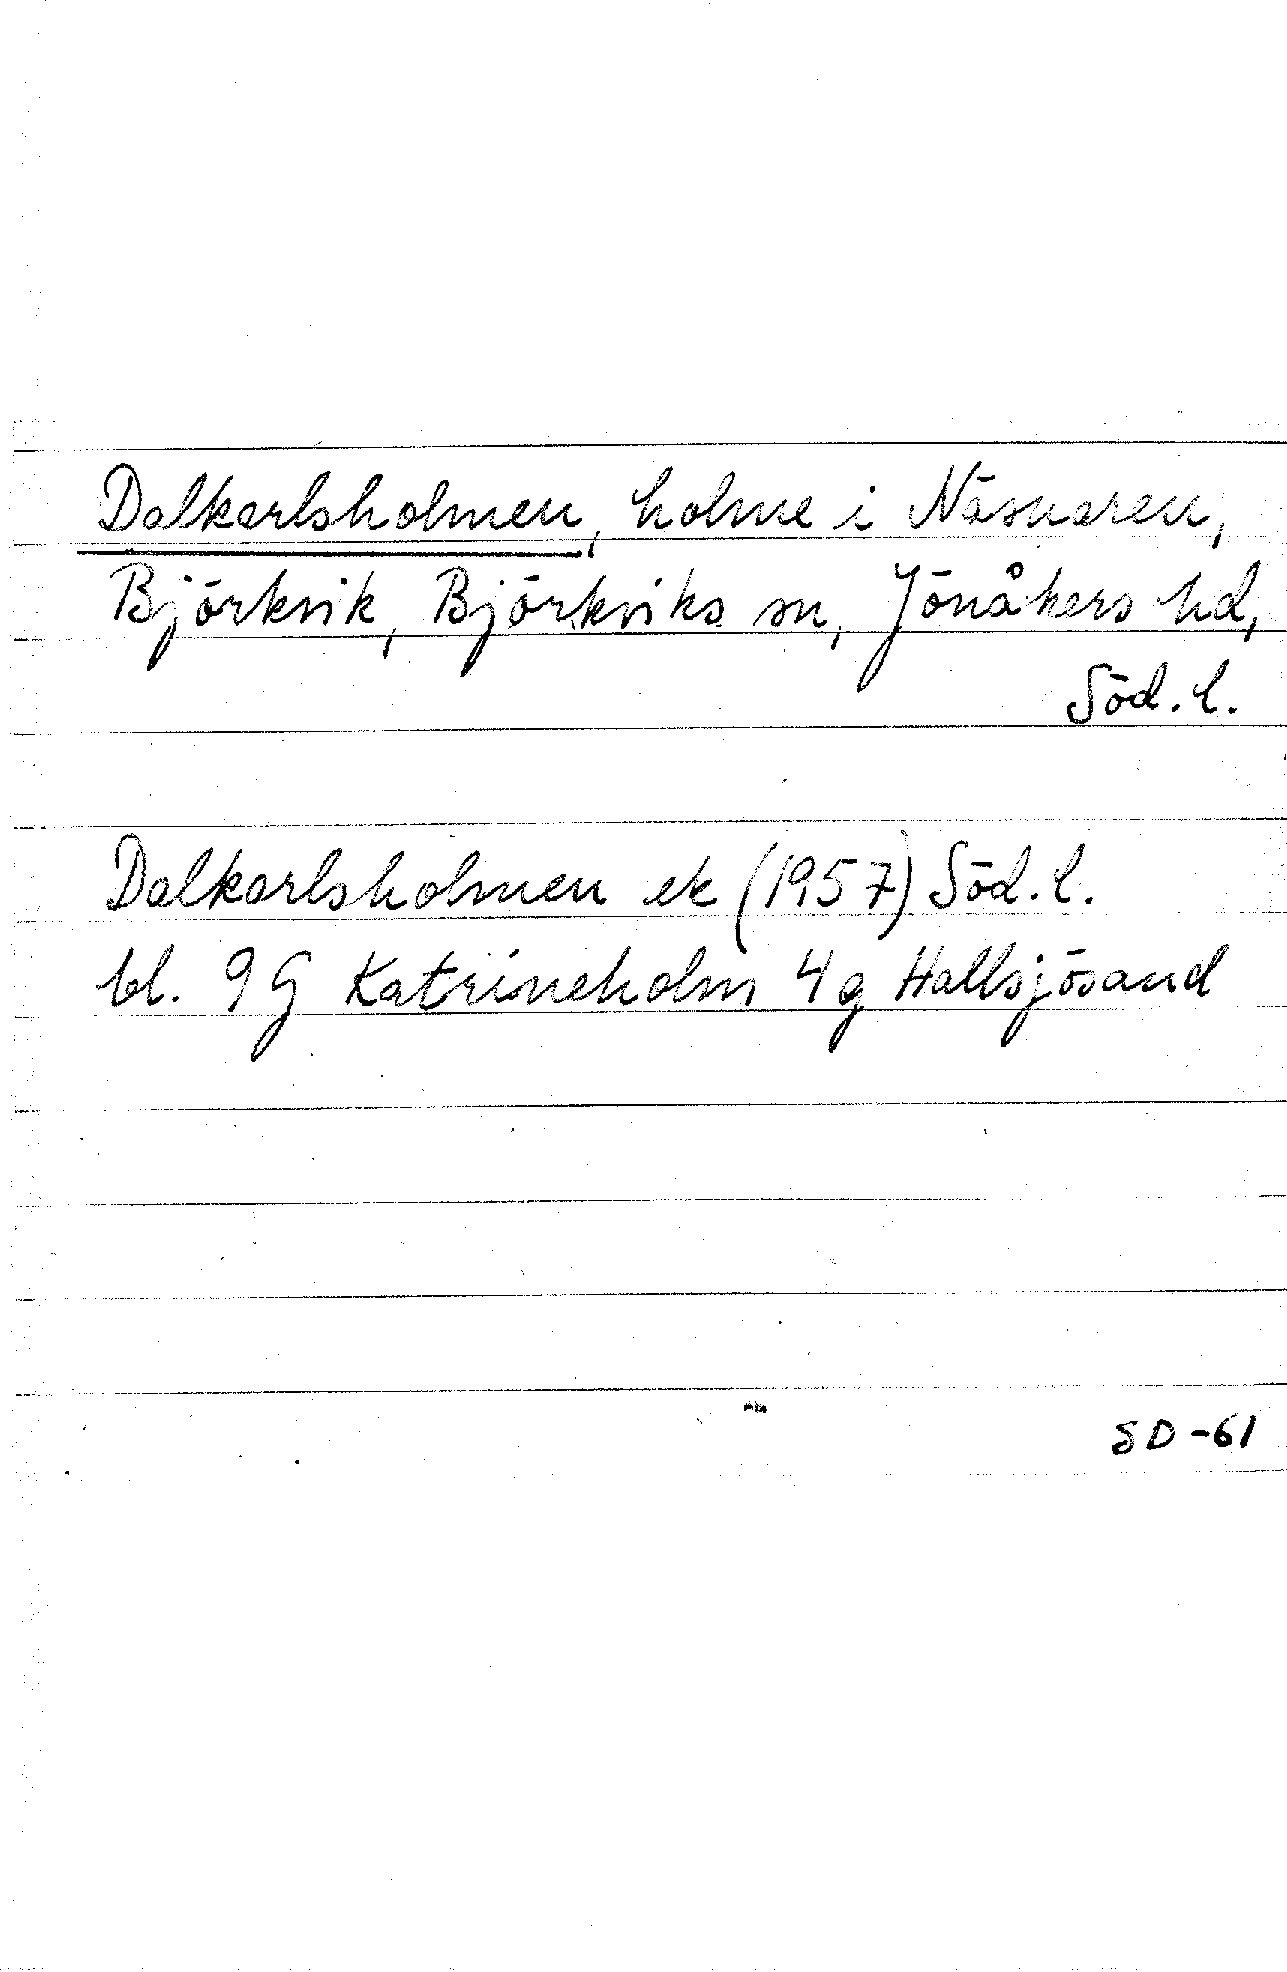 Dalkarlsholmen, holme i Näsnaren,
Björkvik, Björkviks sn, Jönåkers hd,
Söd. l.
Dalkarlsholmen ek (1957) Söd. l.
bl. 9G Katrineholm 4g Hallsjösand
SD-61